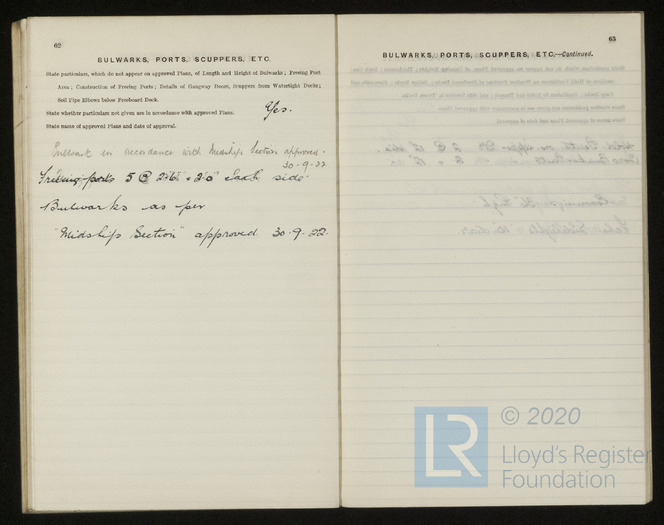 62
BULWARKS, PORTS, SCUPPERS, ETC.
State particulars, which do not appear on approved Plans, of Length and Height of Bulwarks; Freeing Port
Area; Construction of Freeing Ports; Details of Gangway Doors, Scuppers from Watertight Decks;
Soil Pipe Elbows below Freeboard Deck.
State whether particulars not given are in accordance with approved Plans. Yes.
State name of approved Plans and date of approval.
Bulwark in accordance with Midship Section approved.
30-9-22
Freeing ports 5 @ 2'6" x 2'0" each side
Bulwarks as per
"Midship Section" approved 30-9-22.
63
BULWARKS, PORTS, SCUPPERS, ETC.—Continued.
LR
© 2020
Lloyd's Register
Foundation